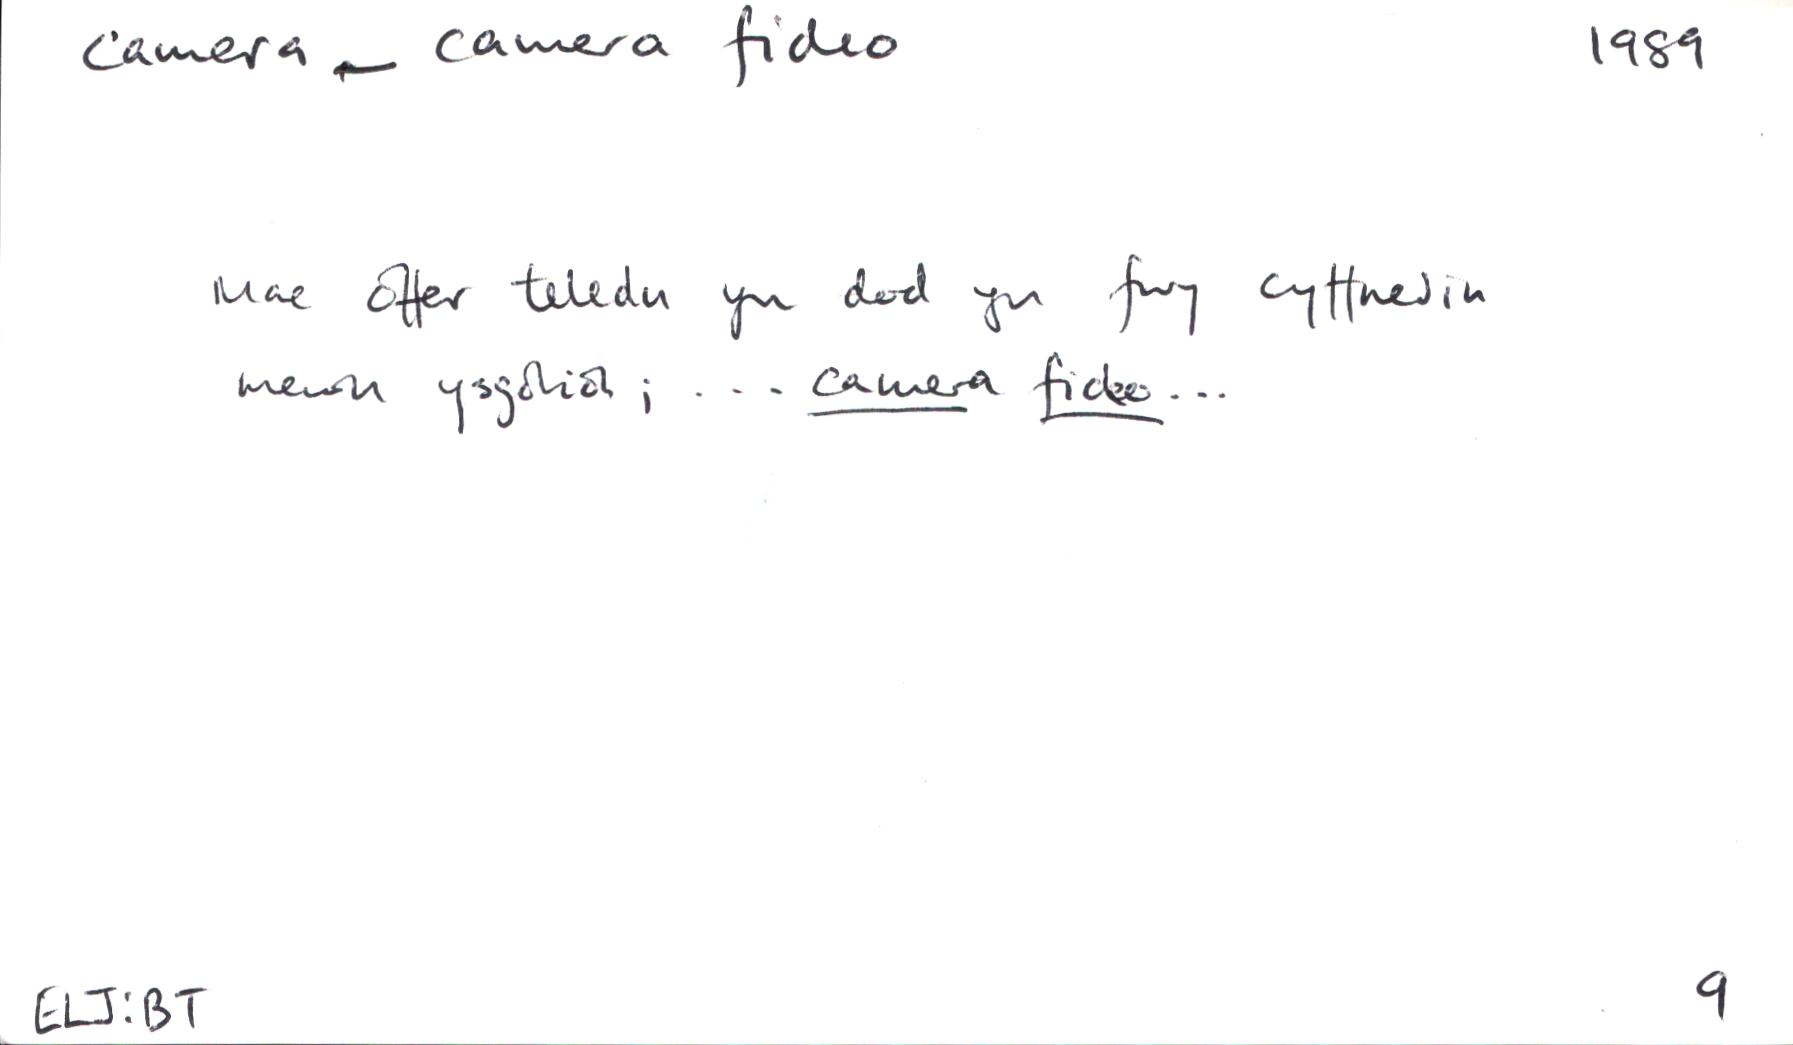 camera - camera fideo 1989
Mae offer teledu yn dod yn fwy cyffredin
mewn ysgolion; ... camera fideo...
ELJ:BT 9